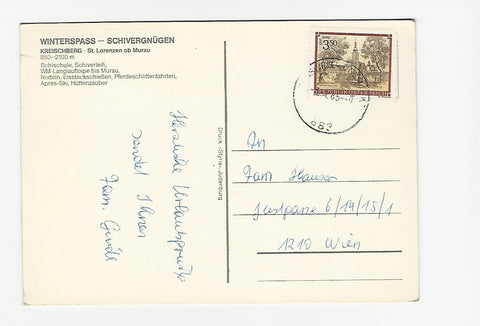 WINTERSPASS – SCHIVERGNÜGEN
KREISCHBERG · St. Lorenzen ob Murau
850–2100 m
Schischule, Schiverleih,
WM-Langlaufloipe bis Murau,
Rodeln, Eisstockschießen, Pferdeschlittenfahrten,
Après-Ski, Hüttenzauber
Herzliche Urlaubsgrüße
sendet Ihnen
Fam.
Druck: »Styria«, Judenburg
REPUBLIK ÖSTERREICH
883
An
Fam Hauser
6/14/15/1
1210 Wien